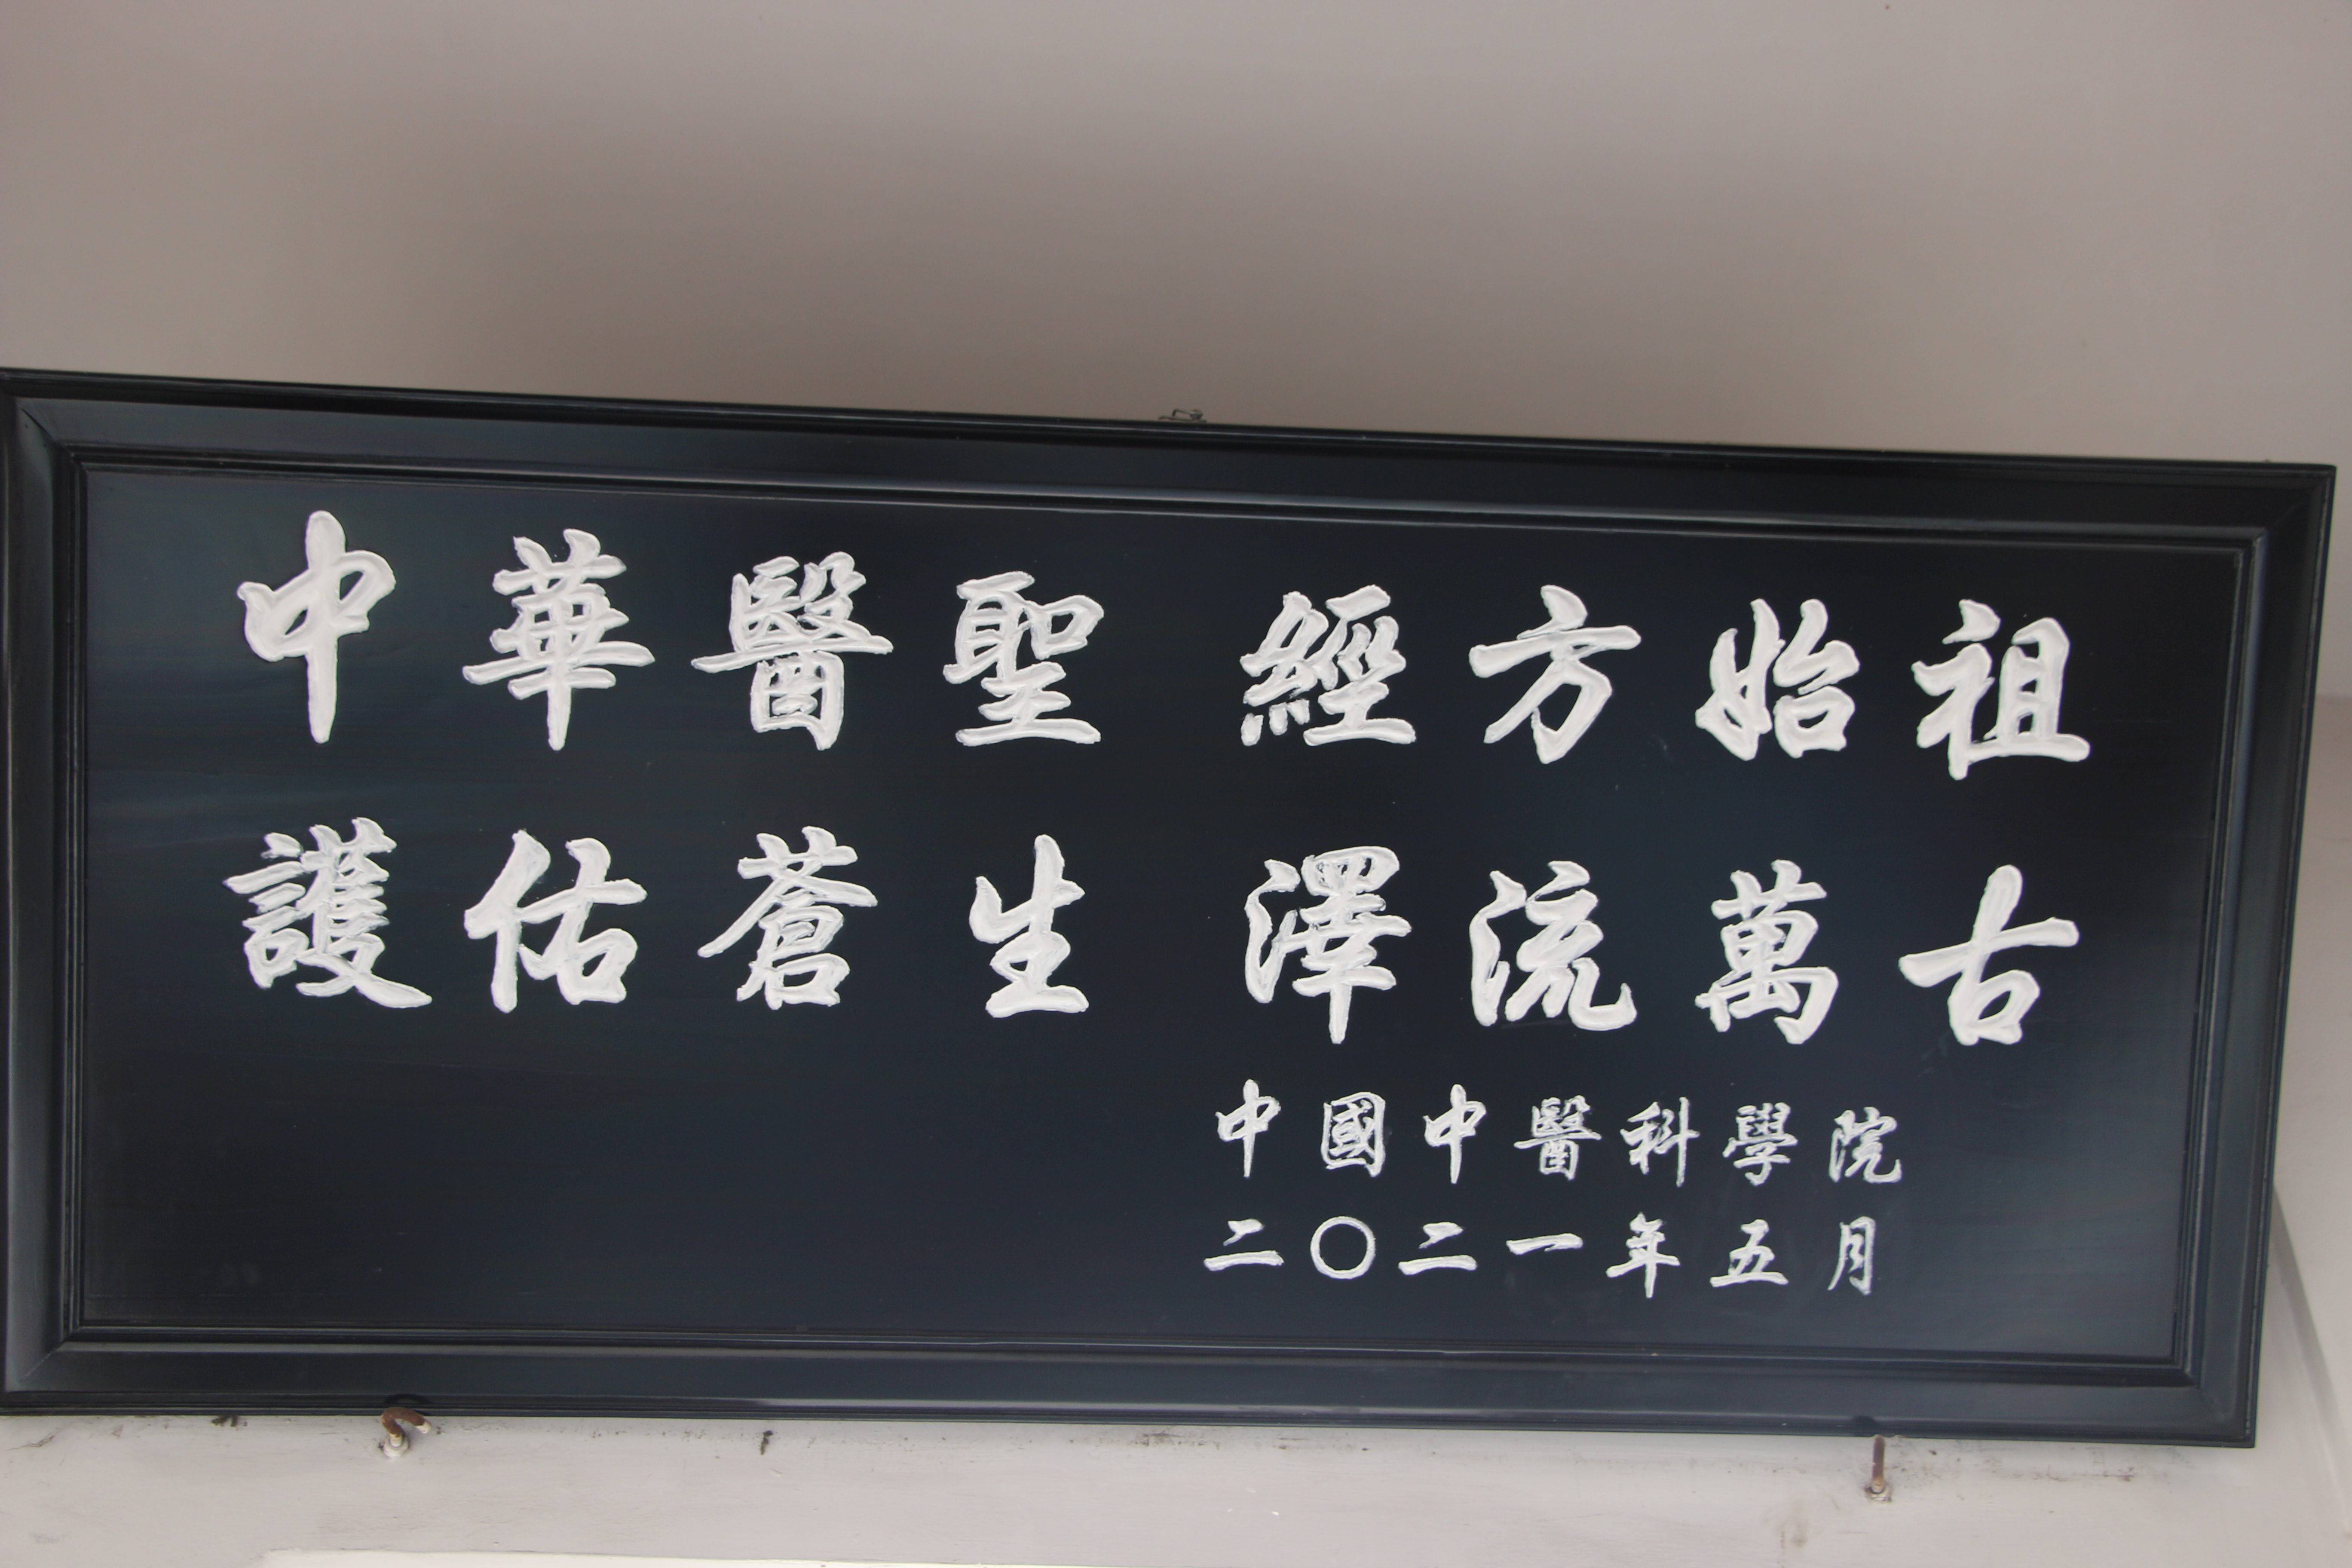 中華醫聖 經方始祖
護佑蒼生 澤流萬古
中國中醫科學院
二〇二一年五月